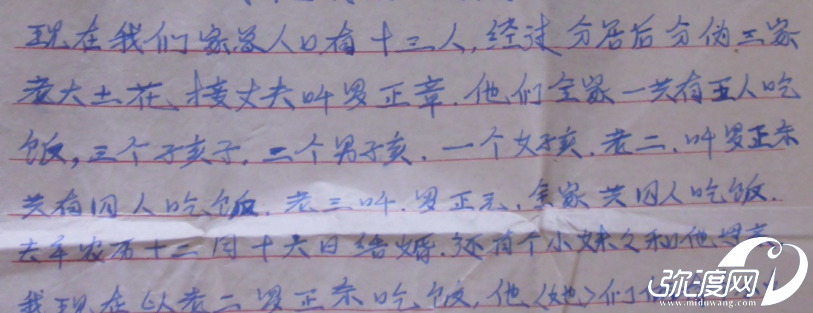 现在我们家总人口有十三人,经过分居后分伪三家
老大土花、接丈夫叫罗正章.他们全家一共有五人吃
饭,三个子孩子.二个男子孩.一个女子孩.老二.叫罗正东
共有四人吃饭.老三叫.罗正元,全家共四人吃饭.
去年农历十二月十六日结婚.还有个小妹々和他
我现在以老二罗正东吃饭,他(她)们
弥渡网
www.miduwang.com